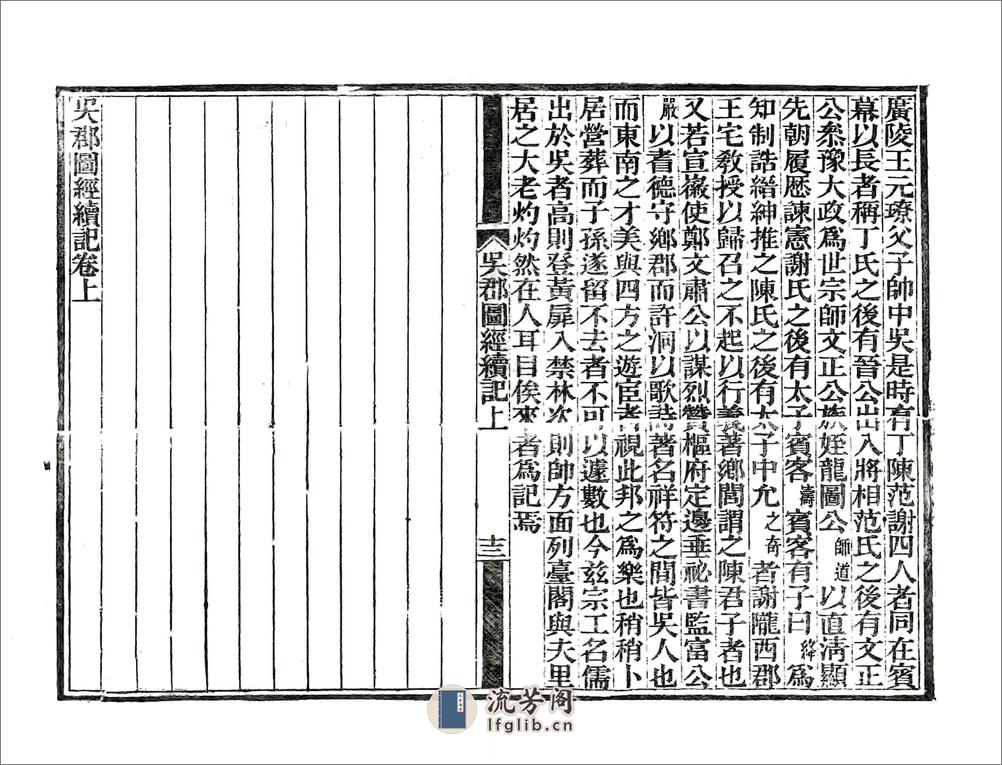 廣陵王元璙父子帥中吳是時有丁陳范謝四人者同在賓
幕以長者稱丁氏之後有晉公出入將相范氏之後有文正
公叅豫大政爲世宗師文正公族姪龍圖公師道以直淸顯
先朝履歷諫憲謝氏之後有太子賓客濤賓客有子曰絳爲
知制誥縉紳推之陳氏之後有太子中允之奇者謝隴西郡
王宅敎授以歸召之不起以行義著鄉閭謂之陳君子者也
又若宣徽使鄭文肅公以謀烈贊樞府定邊垂祕書監富公
嚴以耆德守鄉郡而許洞以歌詩著名祥符之間皆吳人也
而東南之才美與四方之遊宦者視此邦之爲樂也稍稍卜
居營葬而子孫遂留不去者不可以遽數也今兹宗工名儒
出於吳者高則登黃扉入禁林次則帥方面列臺閣與夫里
居之大老灼灼然在人耳目俟來者爲記焉
吳郡圖經續記上
十三
吳郡圖經續記卷上
流芳阁
lfglib.cn